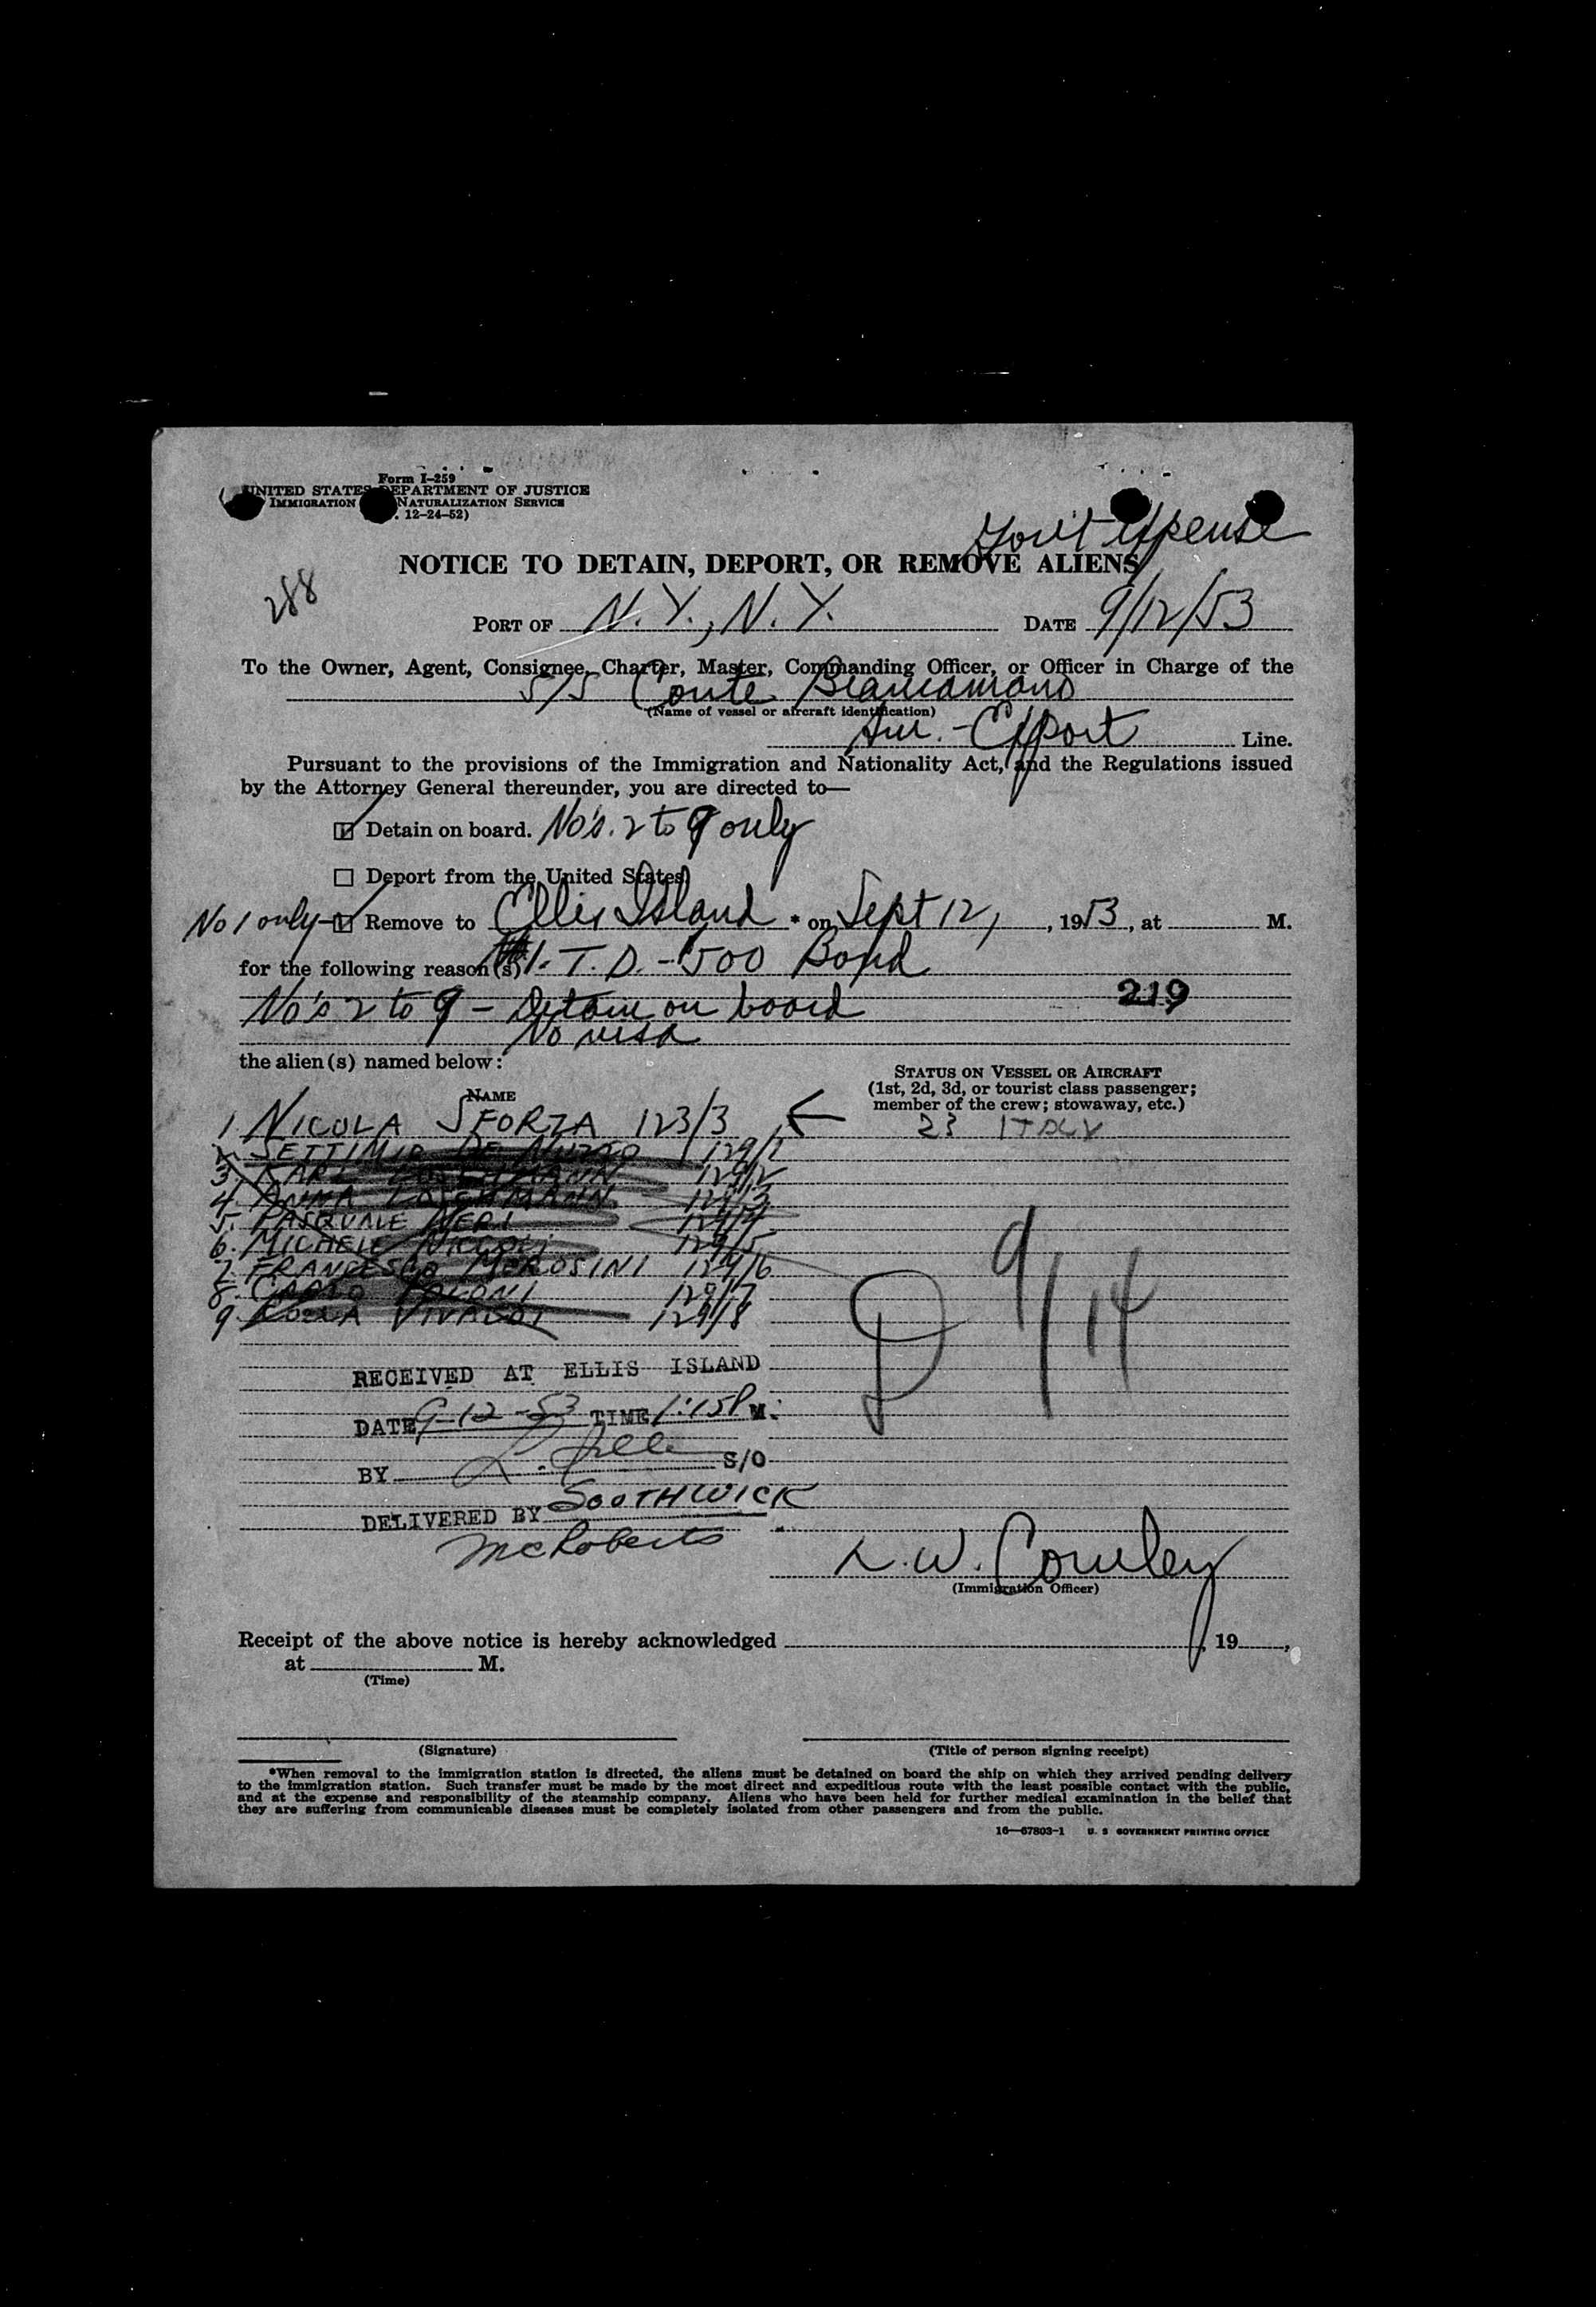 Form I-259
UNITED STATES DEPARTMENT OF JUSTICE
IMMIGRATION NATURALIZATION SERVICE
. 12-24-52)
Gov't Expense
NOTICE TO DETAIN, DEPORT, OR REMOVE ALIENS
288
PORT OF N.Y., N.Y. DATE 9/12/53
To the Owner, Agent, Consignee, Charter, Master, Commanding Officer, or Officer in Charge of the
S/S Conte Biancamano
(Name of vessel or aircraft identification)
Am. - Export Line.
Pursuant to the provisions of the Immigration and Nationality Act, and the Regulations issued
by the Attorney General thereunder, you are directed to—
Detain on board. No's. 2 to 9 only
Deport from the United States
No 1 only - Remove to Ellis Island * on Sept 12, , 1953, at M.
for the following reason(s) #1. T.D. - 500 Bond
No's 2 to 9 - Detain on board
219
No visa
the alien(s) named below:
STATUS ON VESSEL OR AIRCRAFT
(1st, 2d, 3d, or tourist class passenger;
member of the crew; stowaway, etc.)
NAME
1 NICOLA SFORZA 123/3 ← 23 ITALY
2. SETTIMIO DE 129/1
3. KARL 129/2
4. ANNA LOSCHMANN 129/3
5. PASQUALE NERI 129/4
6. MICHELE 129/5
7. FRANCESCO MOROSINI 129/6
8. 129/7
9. VIVALDI 129/8
D 9/14
RECEIVED AT ELLIS ISLAND
DATE 9-12-53 TIME 1:15 P M.
BY L. S/O
DELIVERED BY SOUTHWICK
McRoberts
L. W. Cowley
(Immigration Officer)
Receipt of the above notice is hereby acknowledged , 19 ,
at M.
(Time)
(Signature) (Title of person signing receipt)
*When removal to the immigration station is directed, the aliens must be detained on board the ship on which they arrived pending delivery
to the immigration station. Such transfer must be made by the most direct and expeditious route with the least possible contact with the public,
and at the expense and responsibility of the steamship company. Aliens who have been held for further medical examination in the belief that
they are suffering from communicable diseases must be completely isolated from other passengers and from the public.
16—67803-1 U. S. GOVERNMENT PRINTING OFFICE